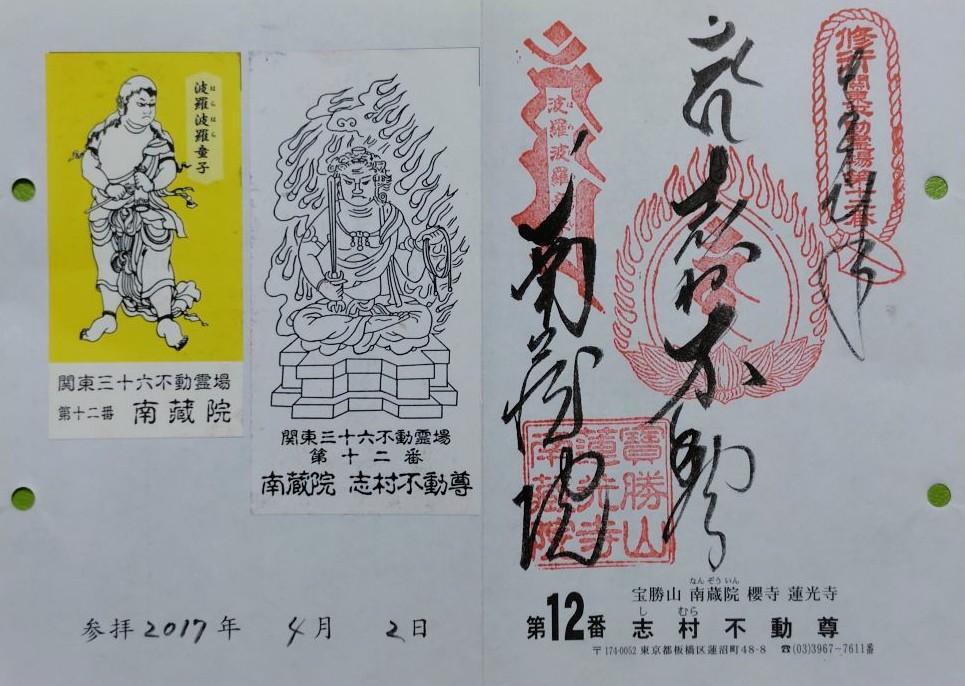 波羅波羅童子
はらはら
関東三十六不動霊場
第十二番 南蔵院
関東三十六不動霊場
第十二番
南蔵院 志村不動尊
参拝2017年 4月 2日
修行関東不動霊場第十二番
奉拝
志村不動
波羅波羅
南蔵院
寶勝山
蓮光寺
南蔵院
なんぞういん
宝勝山 南蔵院 櫻寺 蓮光寺
し むら
第12番 志村不動尊
〒174-0052 東京都板橋区蓮沼町48-8 ☎(03)3967-7611番